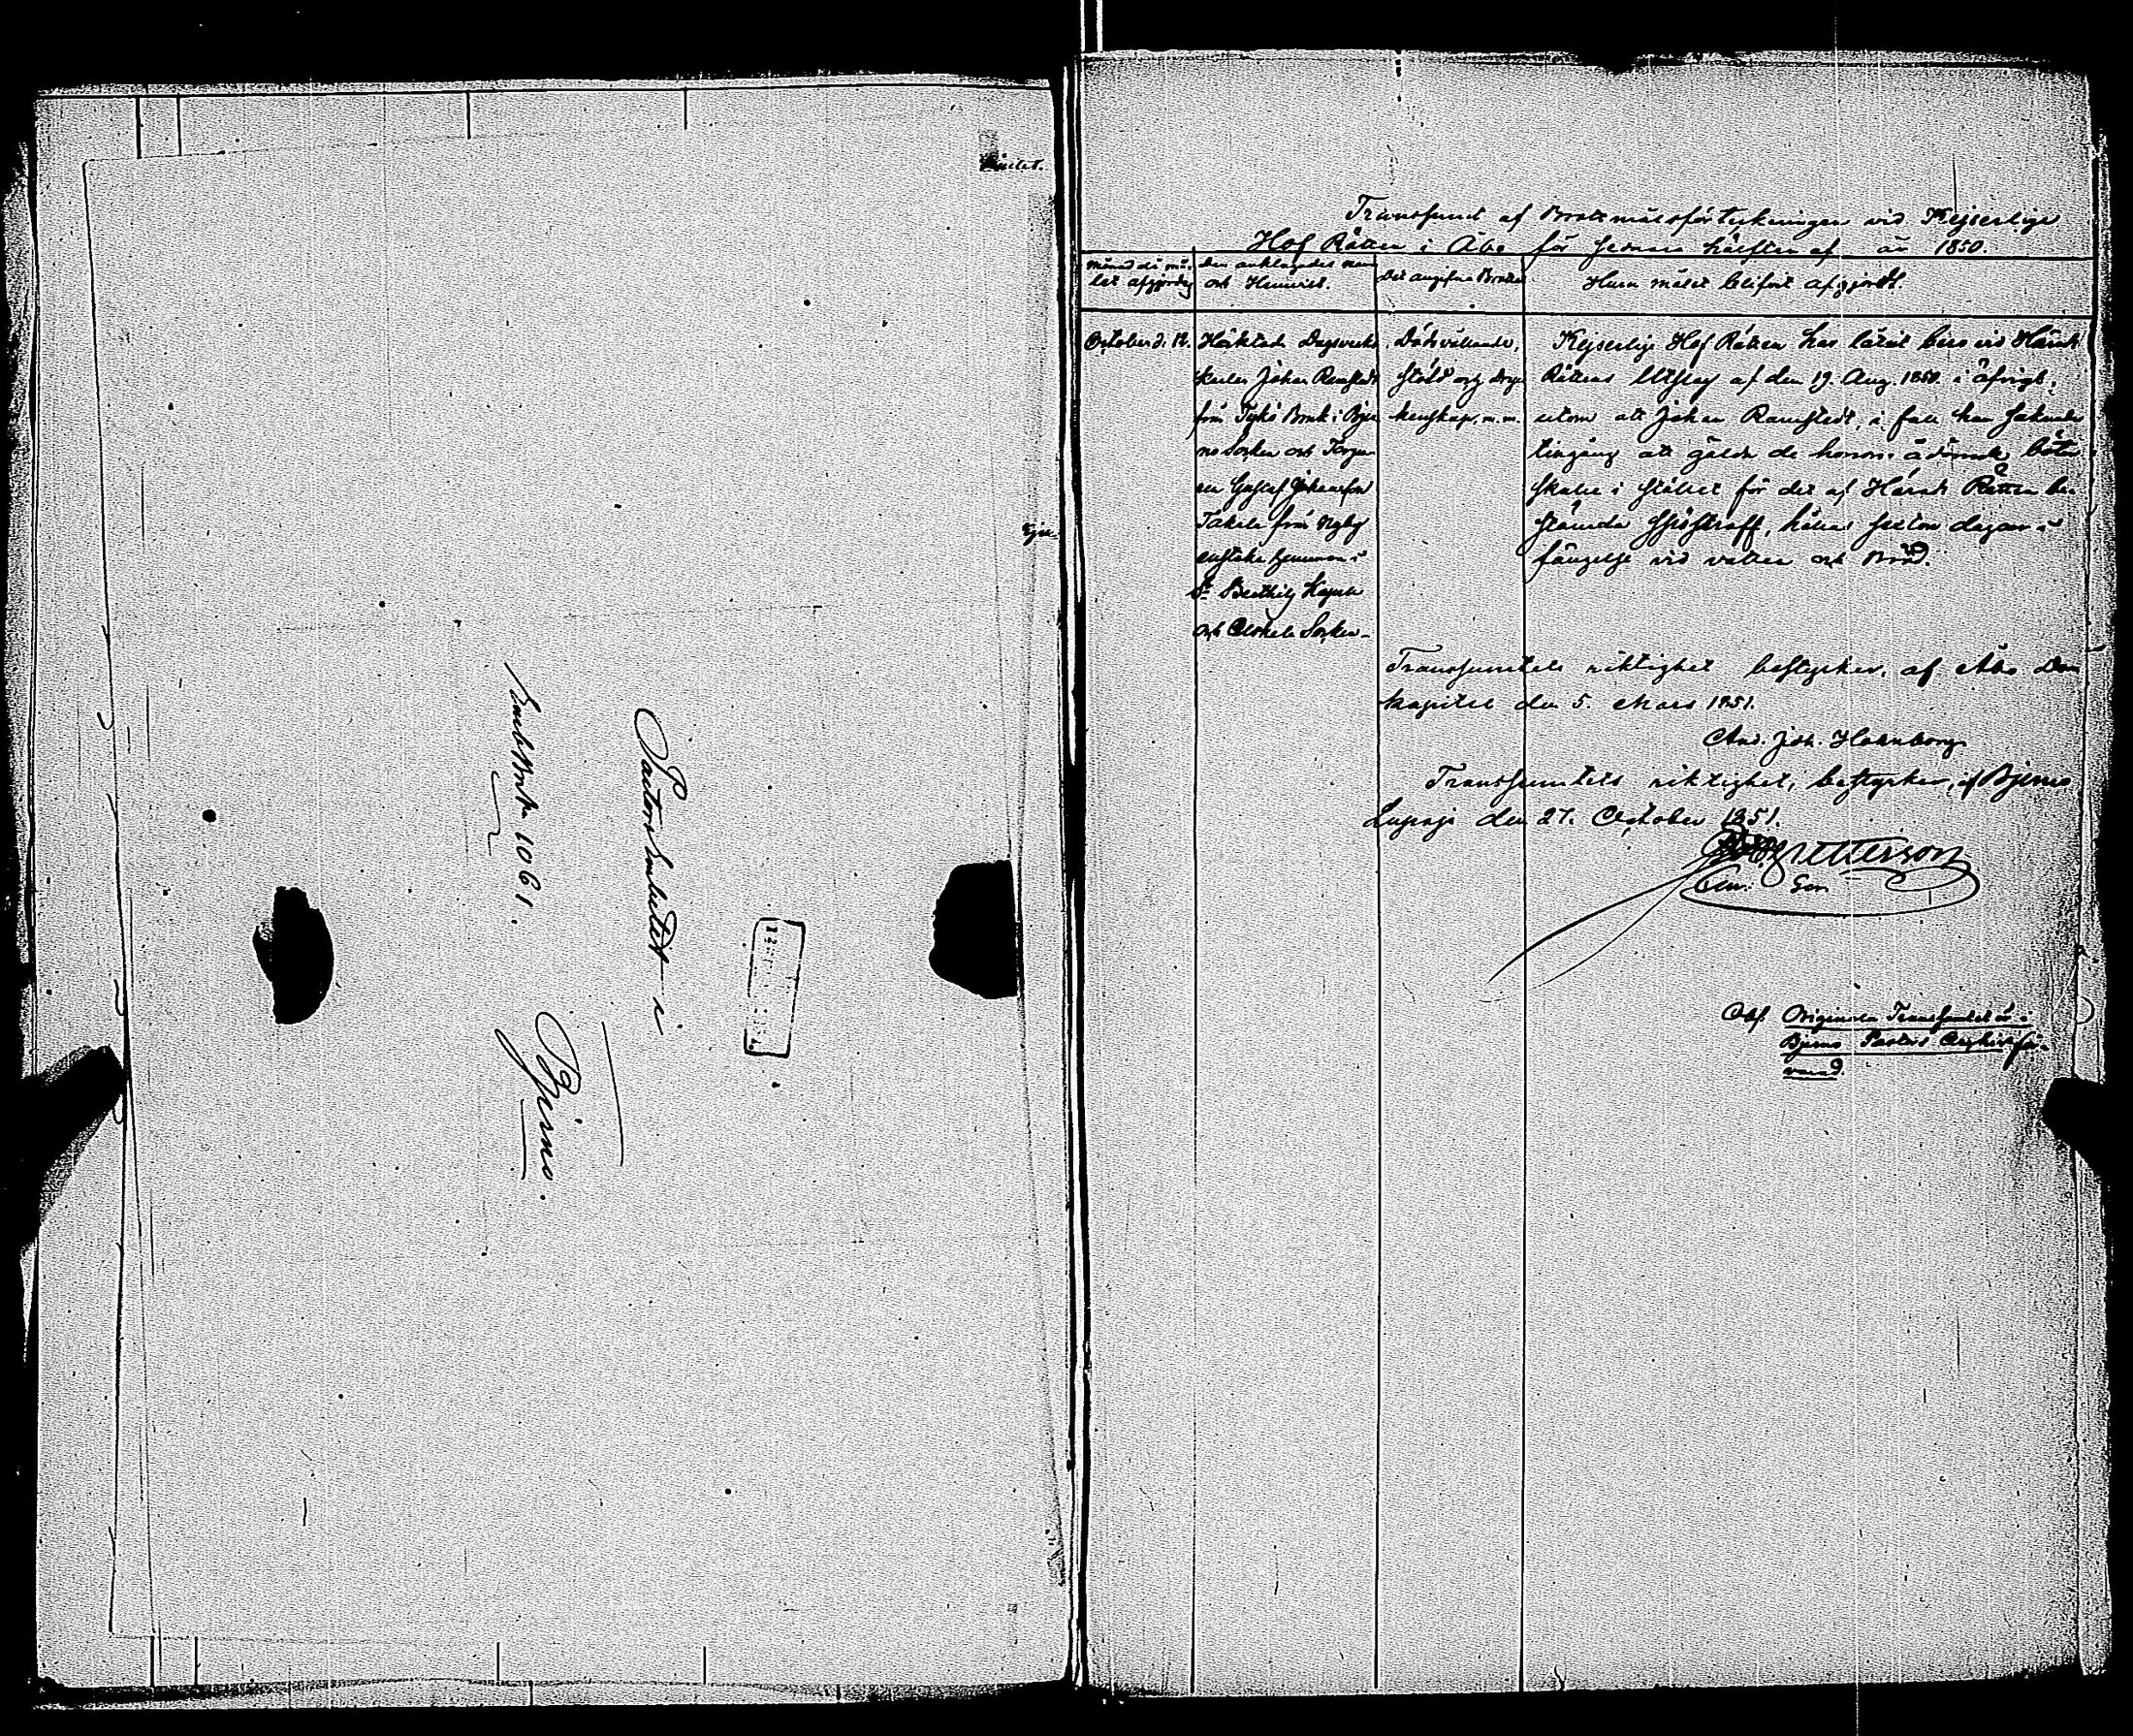 målet.
Bje-
Pastorsembetet i
Bjerno.
1061.
Transsumt af Brottmålsförtekningen vid Kejserliga
Hof Rätten i Åbo för sednare hälften af år 1850.
Månad då må-
let afgjordes
Den anklagades namn
och Hemvist.
Det angifna Brottet
Huru målet blifvit afgjordt.
October d. 12.
Häktade Dagsverks
karlen Johan Ramstedt
från Tykö Bruk i Bjer
no Socken och Torpa-
ren Gustaf Johansson
Takala från Nyby
enstaka hemman i
St Berthils Kapell
och Uskela Socken.
Dödsvållande,
stöld och dryc
kenskap, m. m.
Kejserliga Hof Rätten har låtit bero vid Härads
Rättens Utslag af den 19. Aug. 1850. i öfrigt,
utom att Johan Ramstedt, i fall han saknade
tillgång att gälda de honom ådömda böter
skulle i stället för det af Härads Rätten be-
stämda spöstraff, hållas sexton dagar i
fängelse vid vatten och Bröd.
Transsumtets riktighet bestyrker, af Åbo Dom
kapitel den 5. Mars 1851.
And. Joh. Holmborg
Transsumtets riktighet, bestyrker, af Bjerno
den 27. October 1851.
Petterson
Obs. Originala Transsumtet är i
Bjerno Pastors Archiv för-
varad.